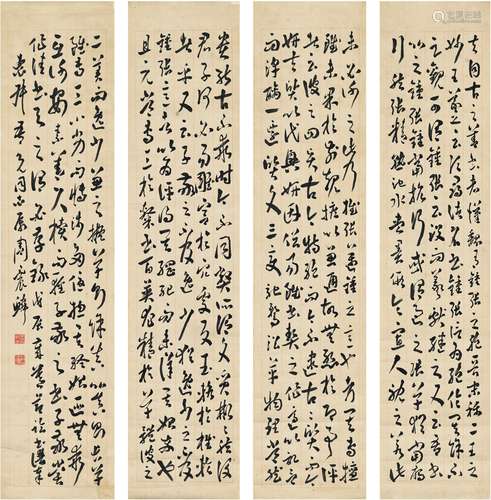 夫自古之善書者漢魏有鍾張之絕晉末稱二王之
妙王羲之云頃尋諸名書鍾張信為絕倫其餘不足
觀可謂鍾張云沒而羲獻繼之又云吾書
比之鍾張鍾當抗行或謂過之張草猶當雁
行然張精熟池水盡墨假令寡人耽之若此
未必謝之此乃推張邁鍾之意也考其專擅
雖未果於前規摭以兼通故無慚於即事評者云
彼之四賢古今特絕而今不逮古古質而今
妍夫質以代興妍因俗易雖書契之作適以記言
而淳醨一遷質文三變馳騖沿革物理常然
貴能古不乖時今不同弊所謂文質彬彬然後
君子何必易雕宮於穴處反玉輅於椎輪
者乎又云子敬之不及逸少猶逸少之不及
鍾張意者以為評得其綱紀而未詳其始卒也
且元常專工於隸書伯英尤精於草體彼之
二美而逸少兼之擬草則餘真比真則長草
雖專工小劣而博涉多優總其終始匪無乖
互謝安素善尺牘而輕子敬之書子敬嘗
作佳書與之謂必存錄戊辰
吾兄同志屬周震鱗